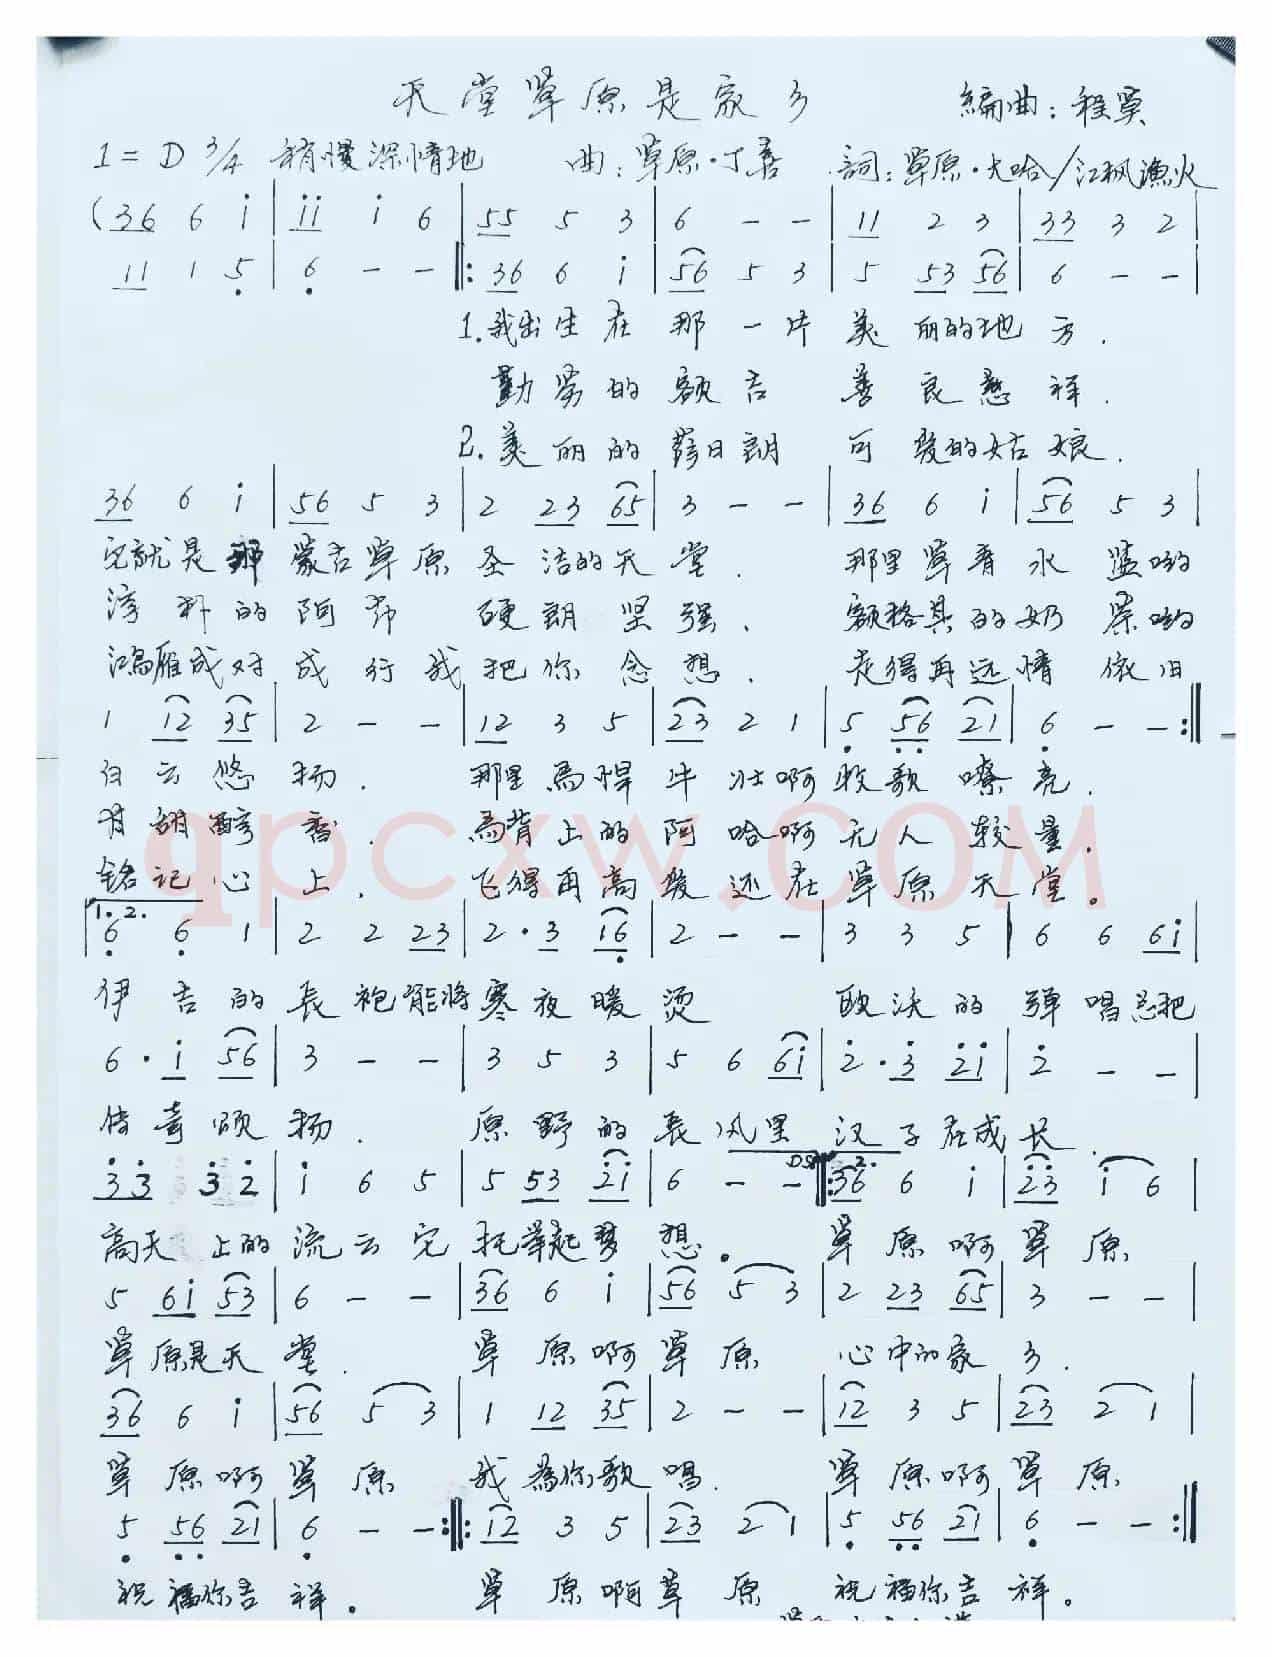 天堂草原是家乡
編曲：程
1=D 3/4 稍慢深情地 曲：草原·丁喜 詞：草原·大哈/江枫漁火
(36 6 i | ii i 6 | 55 5 3 | 6 - - | 11 2 3 | 33 3 2 |
11 1 5 | 6 - - ‖: 36 6 i | 56 5 3 | 5 53 56 | 6 - - |
1.我出生在那一片美丽的地方.
勤劳的额吉善良慈祥.
2.美丽的日朗可爱的姑娘.
36 6 i | 56 5 3 | 2 23 65 | 3 - - | 36 6 i | 56 5 3 |
它就是那蒙古草原圣洁的天堂. 那里草青水蓝哟
淳朴的阿布硬朗坚强. 额格其的奶茶哟
鸿雁成对成行我把你念想. 走得再远情依旧
1 12 35 | 2 - - | 12 3 5 | 23 2 1 | 5 56 21 | 6 - - :‖
白云悠扬. 那里馬悍牛壮啊牧歌嘹亮.
甘甜醇香. 馬背上的阿哈啊无人较量.
铭记心上. 飞得再高爱还在草原天堂。
qpcxw.COM
1.2.
6 6 1 | 2 2 23 | 2·3 16 | 2 - - | 3 3 5 | 6 6 6i |
伊吉的長袍能將寒夜暖烫 欧沃的弹唱总把
6·i 56 | 3 - - | 3 5 3 | 5 6 6i | 2·3 2i | 2 - - |
传奇颂扬. 原野的長风里汉子在成长
DS 2.
33 32 | i 6 5 | 5 53 2i | 6 - - ‖: 36 6 i | 23 i 6 |
高天上的流云它托举起梦想。草原啊草原
5 6i 53 | 6 - - | 36 6 i | 56 5 3 | 2 23 65 | 3 - - |
草原是天堂. 草原啊草原心中的家乡.
36 6 i | 56 5 3 | 1 12 35 | 2 - - | 12 3 5 | 23 2 1 |
草原啊草原我為你歌唱. 草原啊草原
5 56 21 | 6 - - :‖: 12 3 5 | 23 2 1 | 5 56 21 | 6 - - :‖
祝福你吉祥。草原啊草原祝福你吉祥。